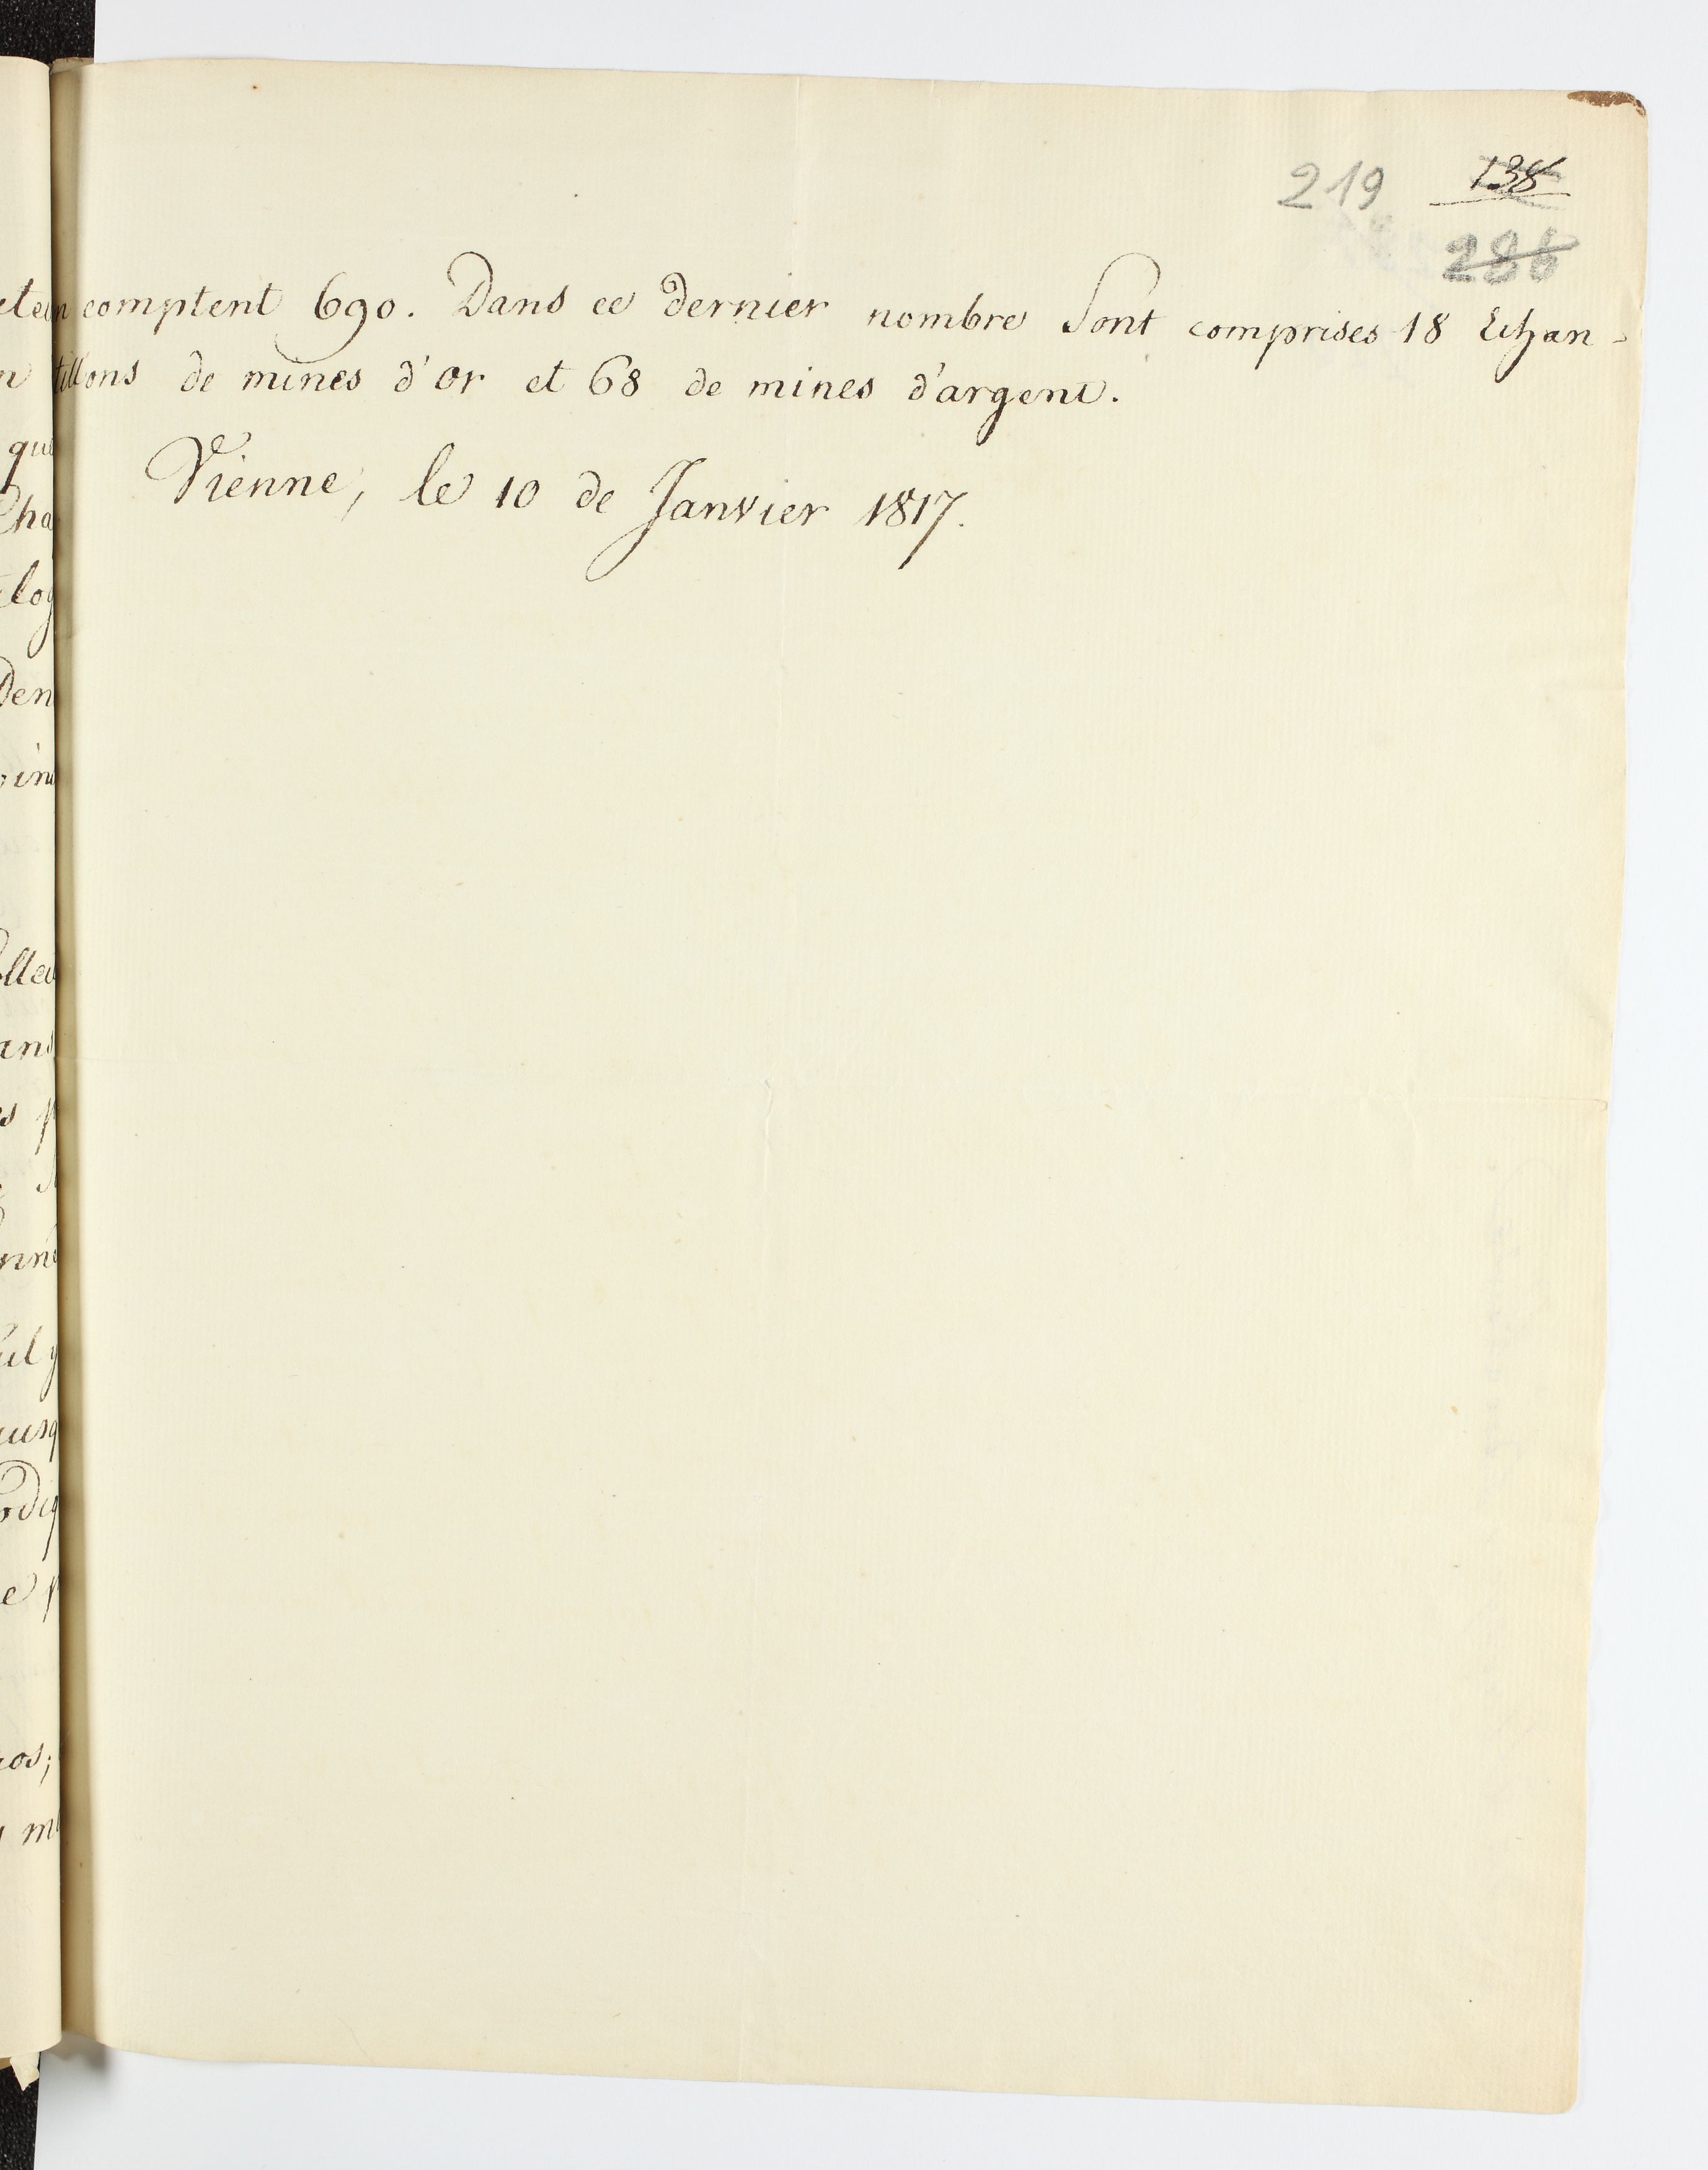 219 138
286
en comptent 690. Dans ce dernier nombre Sont comprises 18 Echan-
tillons de mines d'or et 68 de mines d'argent.
Vienne, le 10 de Janvier 1817.